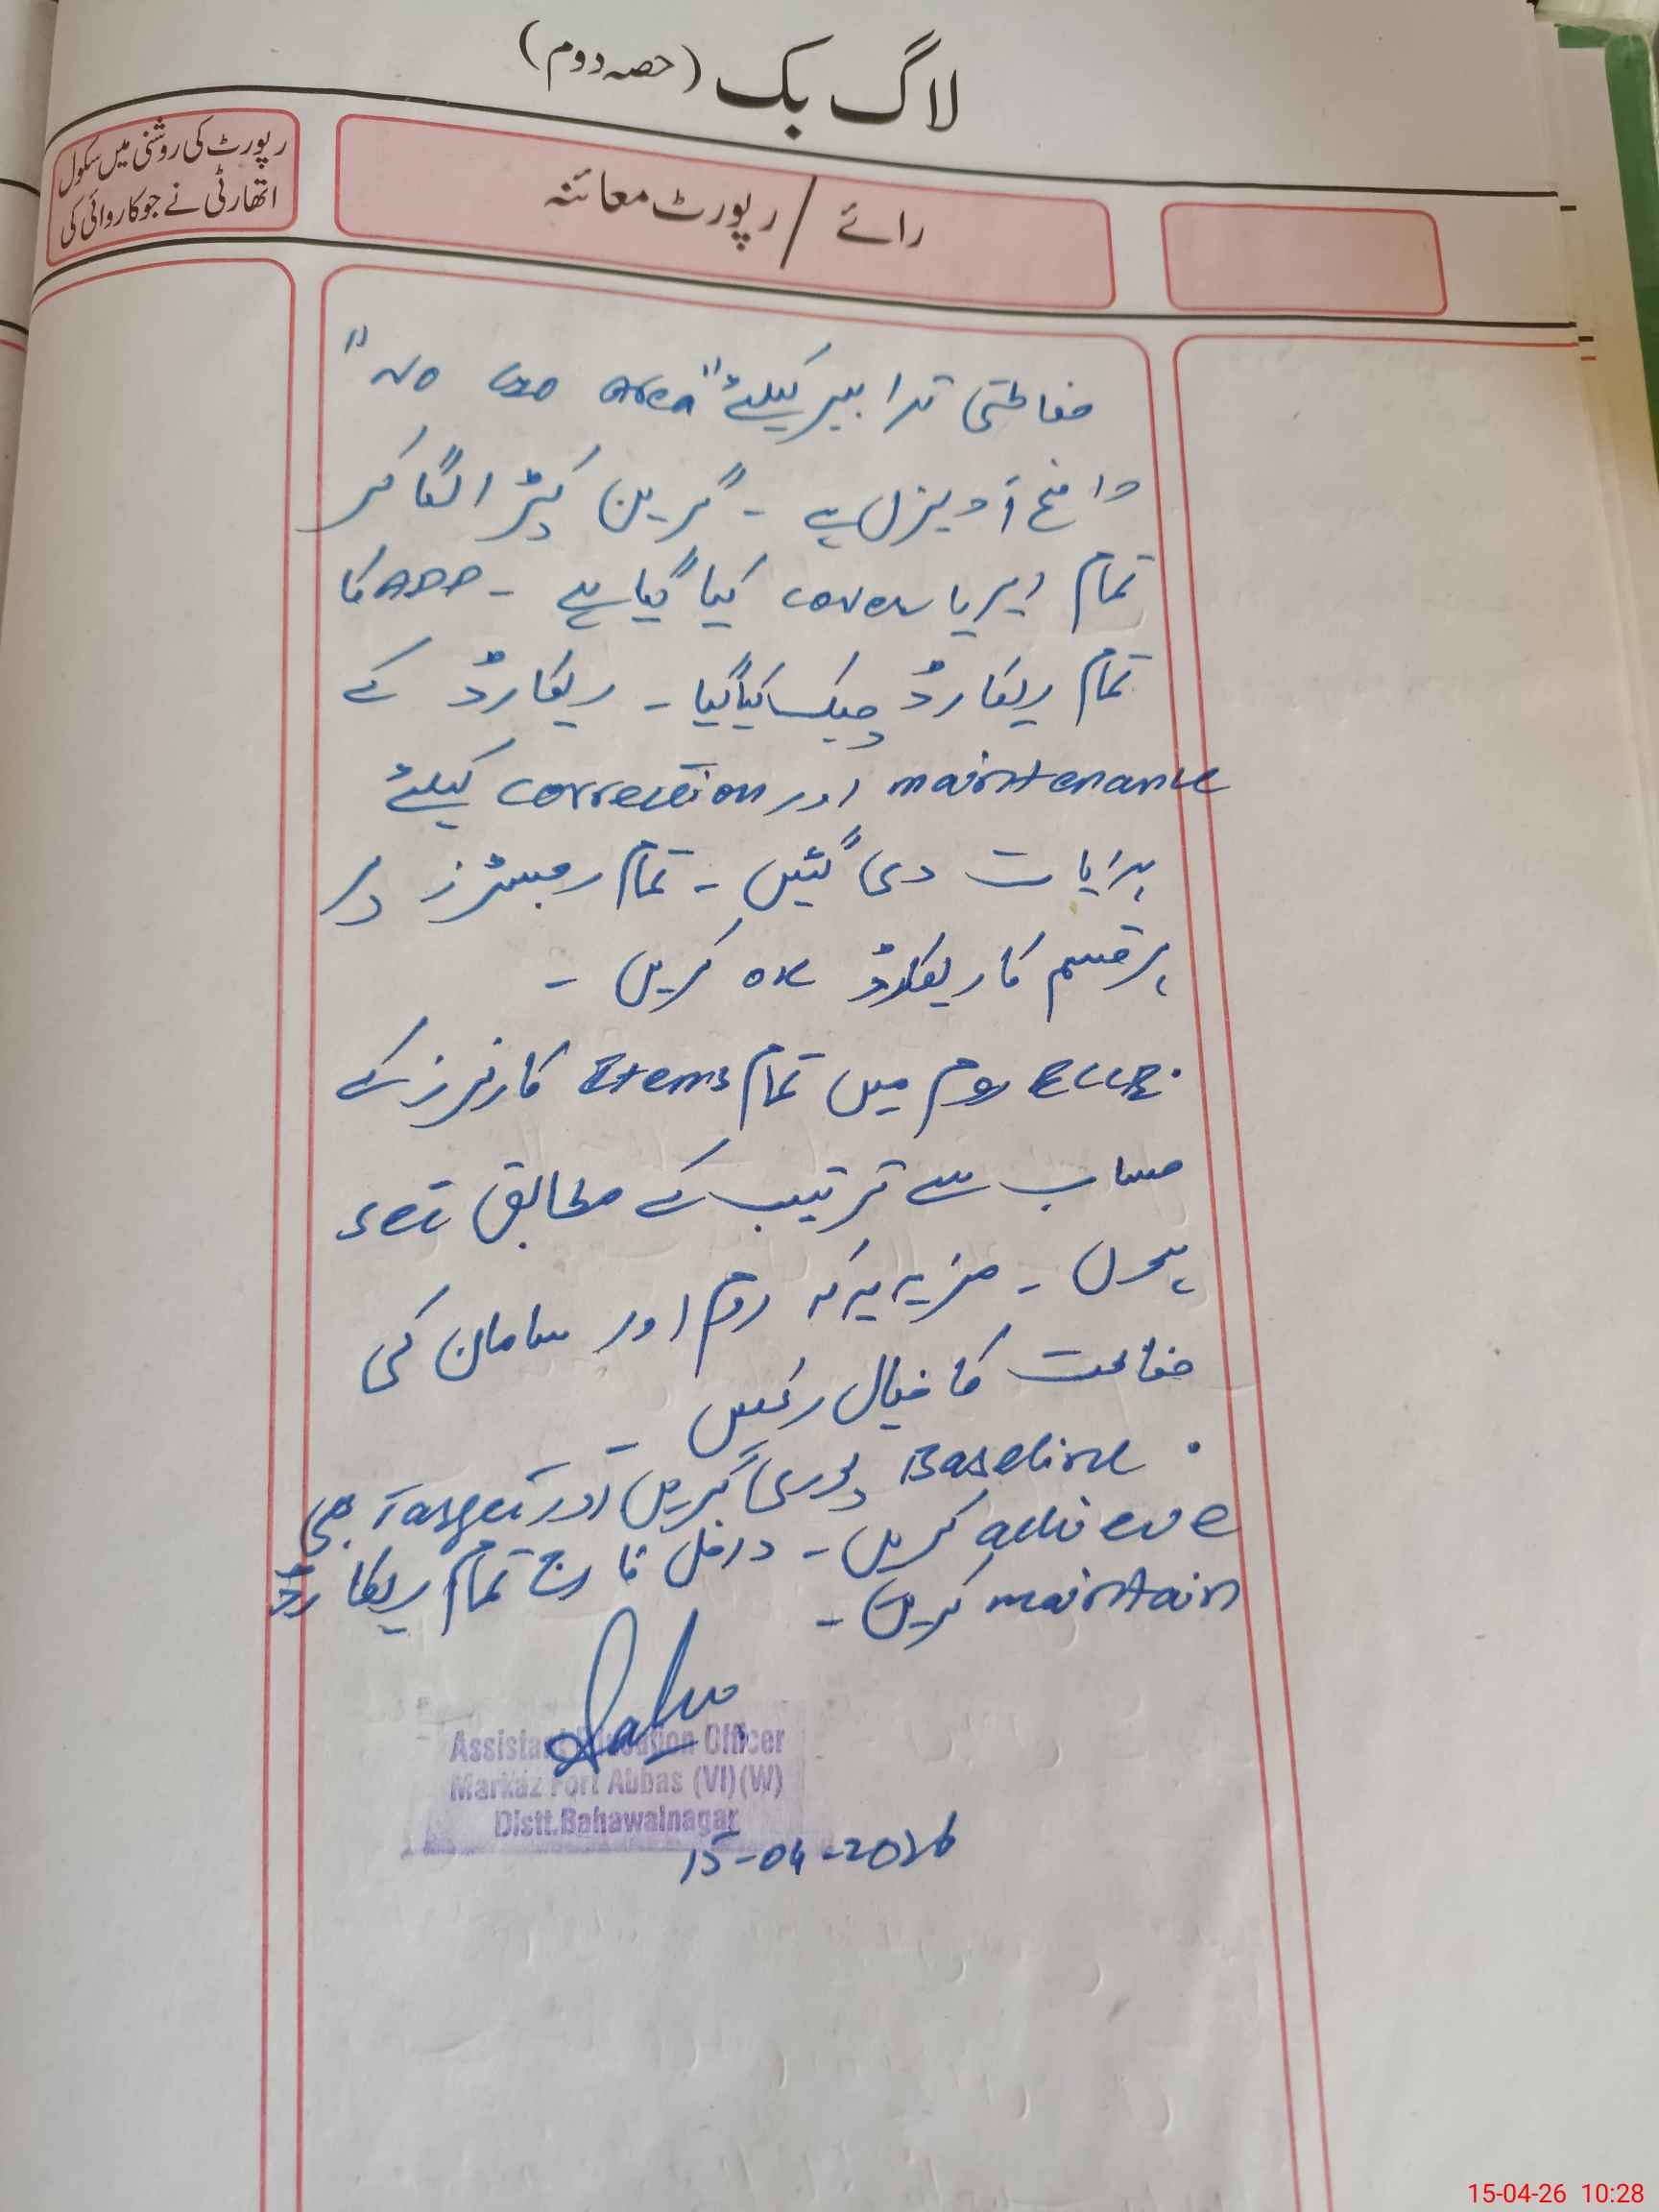 لاگ بک (حصہ دوم)
رائے / رپورٹ معائنہ
رپورٹ کی روشنی میں سکول
اتھارٹی نے جو کاروائی کی
حفاظتی تدابیر کیلئے "No Go Area"
واضح آویزاں ہے ۔ گرین کپڑا لگا کر
تمام ایریا cover کیا گیا ہے ۔ ADP کا
تمام ریکارڈ چیک کیا گیا ۔ ریکارڈ کے
maintenance اور correction کیلئے
ہدایات دی گئیں ۔ تمام رجسٹرز و
ہر قسم کا ریکارڈ ok کریں ۔
. ECCE روم میں تمام Items کارنرز کے
حساب سے ترتیب کے مطابق set
ہوں ۔ مزید یہ کہ روم اور سامان کی
حفاظت کا خیال رکھیں ۔
. Baseline پوری کریں اور Target بھی
achieve کریں ۔ داخل خارج تمام ریکارڈ
maintain کریں ۔
Assistant Education Officer
Markaz Fort Abbas (VI)(W)
Distt.Bahawalnagar
15-04-2026
15-04-26 10:28